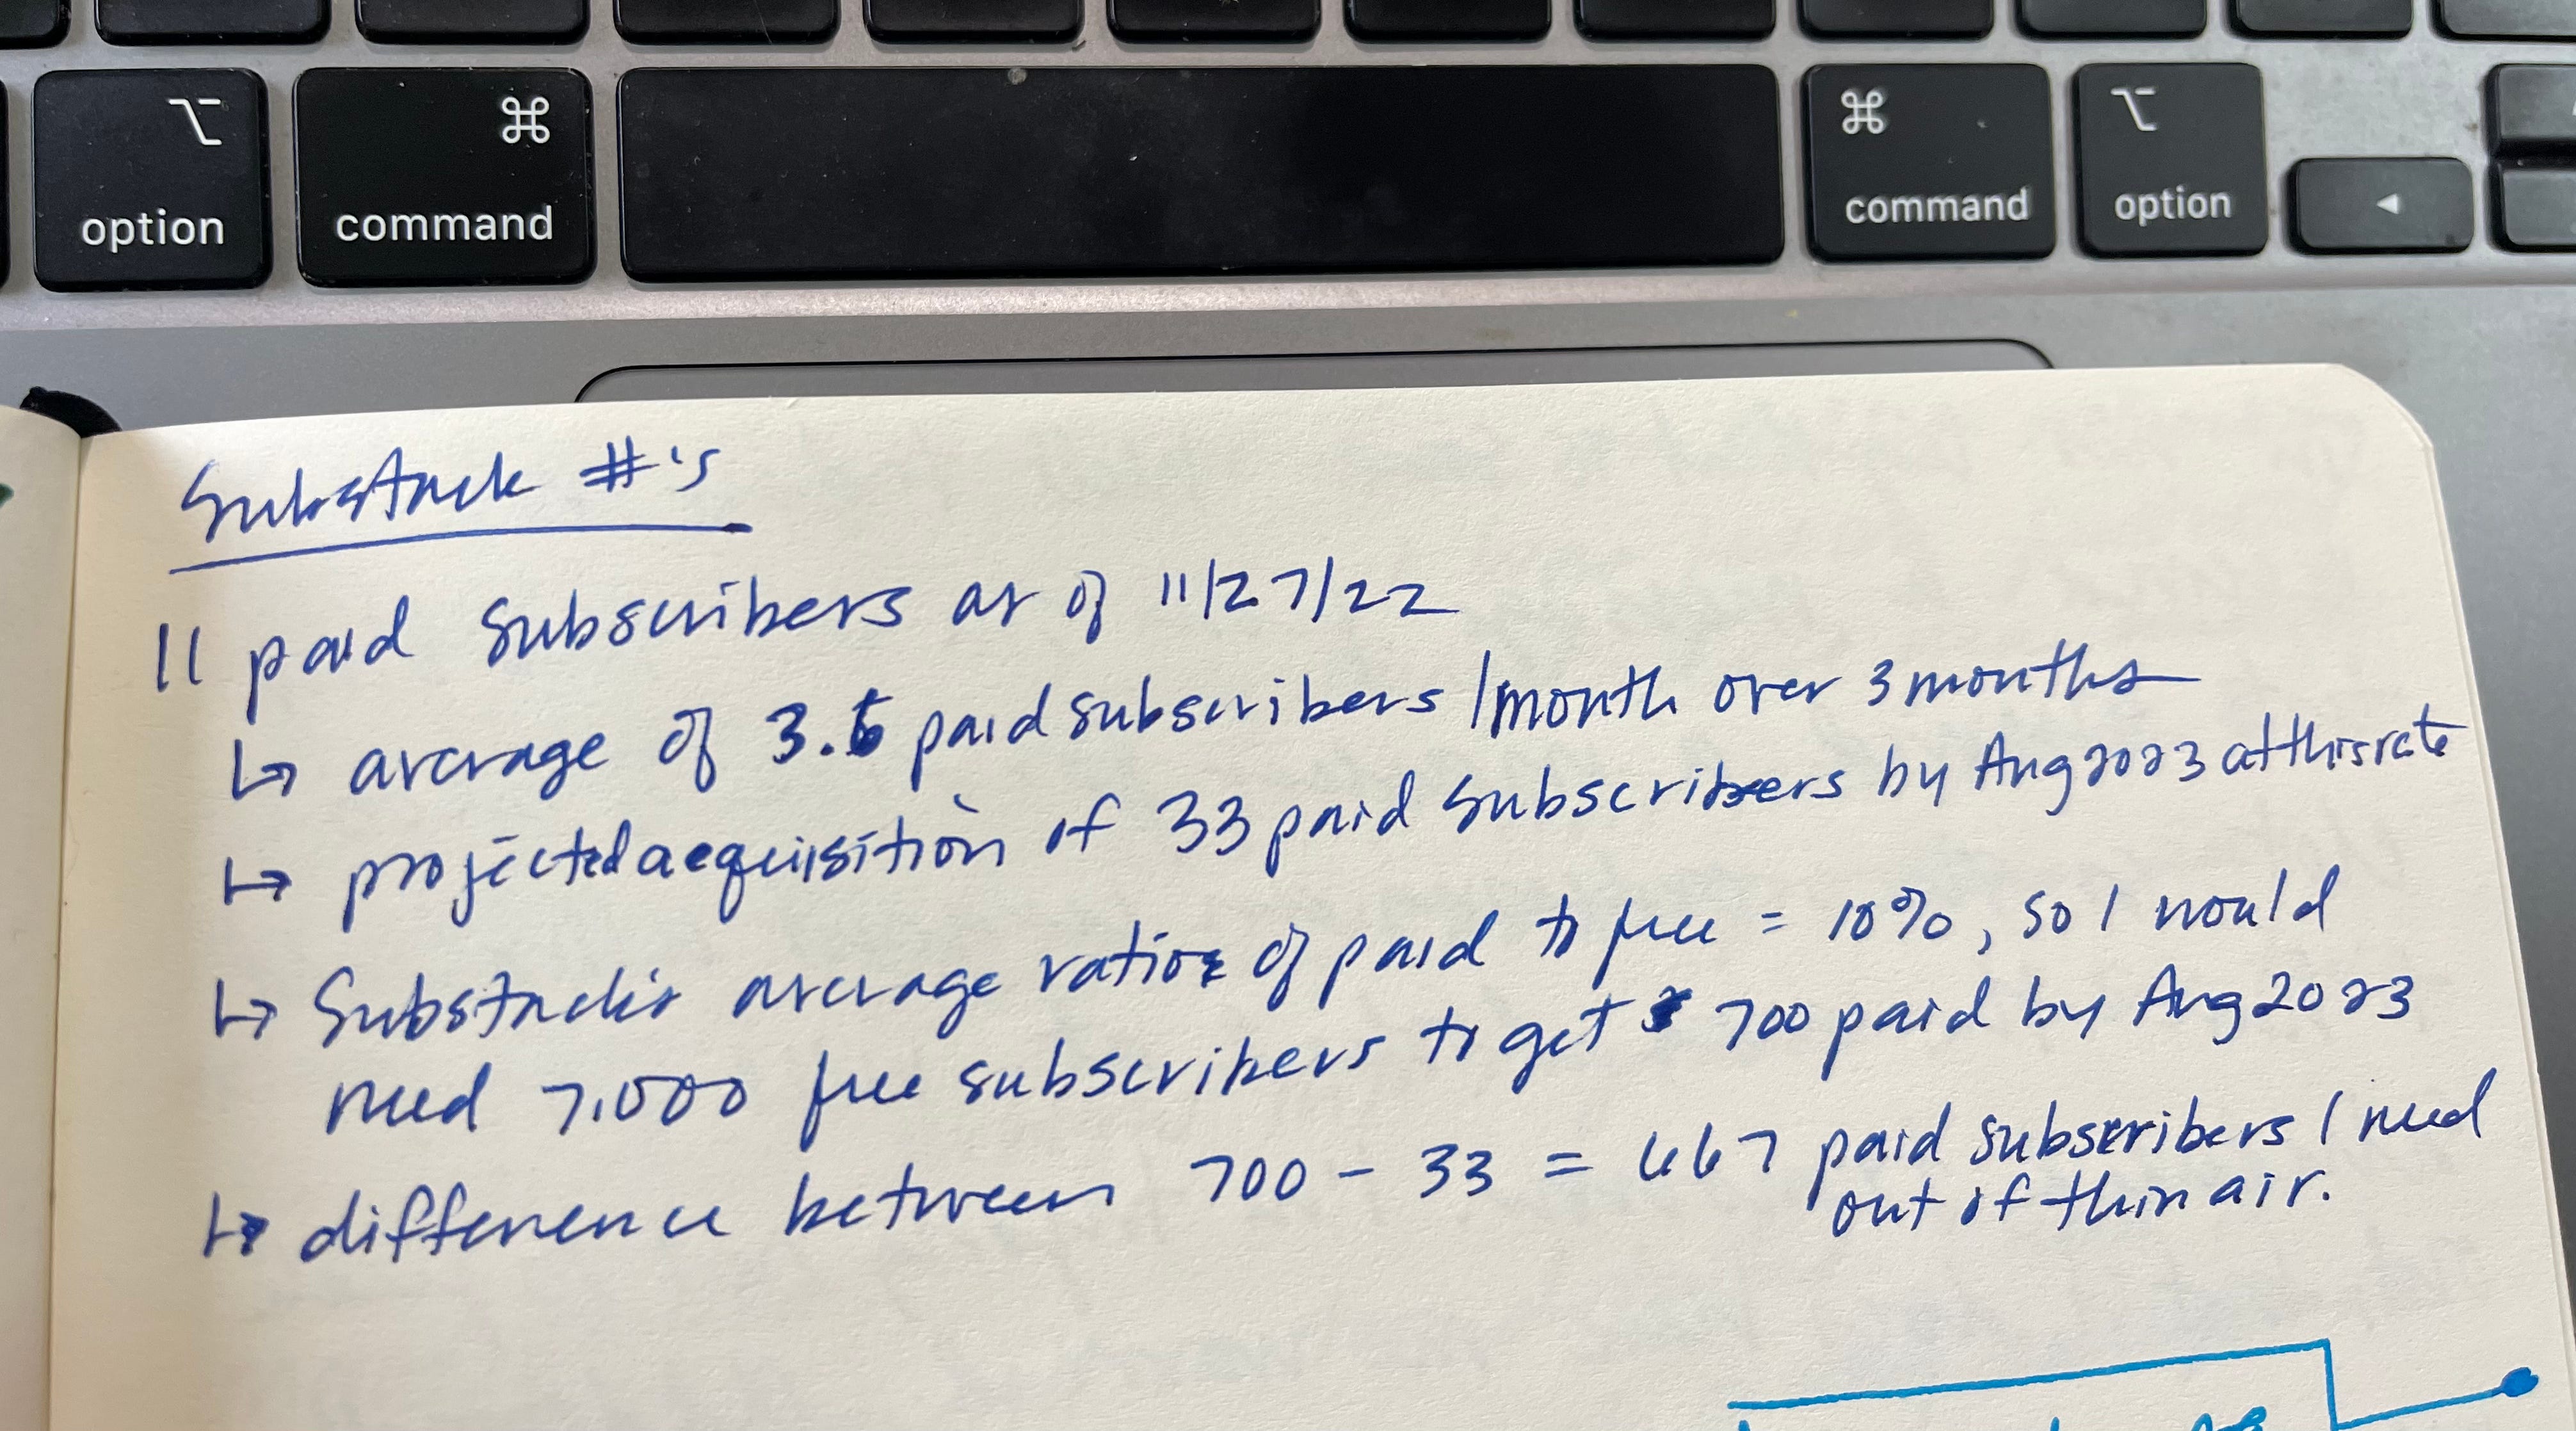 option command command option
Substack #'s
11 paid subscribers as of 11/27/22
↳ average of 3.6 paid subscribers/month over 3 months
↳ projected acquisition of 33 paid subscribers by Aug 2023 at this rate
↳ Substack's average ratio of paid to free = 10%, so I would
need 7,000 free subscribers to get 700 paid by Aug 2023
↳ difference between 700 - 33 = 667 paid subscribers I need
out of thin air.